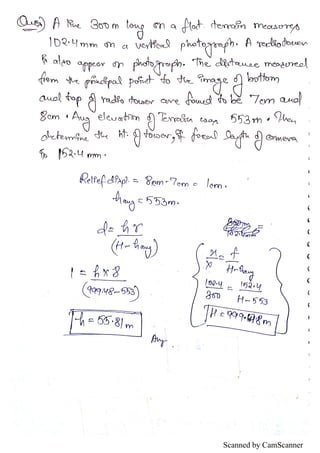 Ques) A line 300m long on a flat terrain measures
102.4mm on a vertical photograph. A radiotower
is also appear on photograph. The distance measured
from the principal point to the image of bottom
and top of radio tower are found to be 7cm and
8cm. Avg elevation of Terrain was 553m. Then
determine the ht. of tower, if focal length of camera
is 152.4 mm.
Relief displ. = 8cm - 7cm = 1cm.
havg = 553m.
d = h r
(H-havg)
1 = h x 8
(999.48-553)
h = 55.81m
Ans
x = f
X H-havg
102.4 = 152.4
300 H-553
H = 999.48m
Scanned by CamScanner